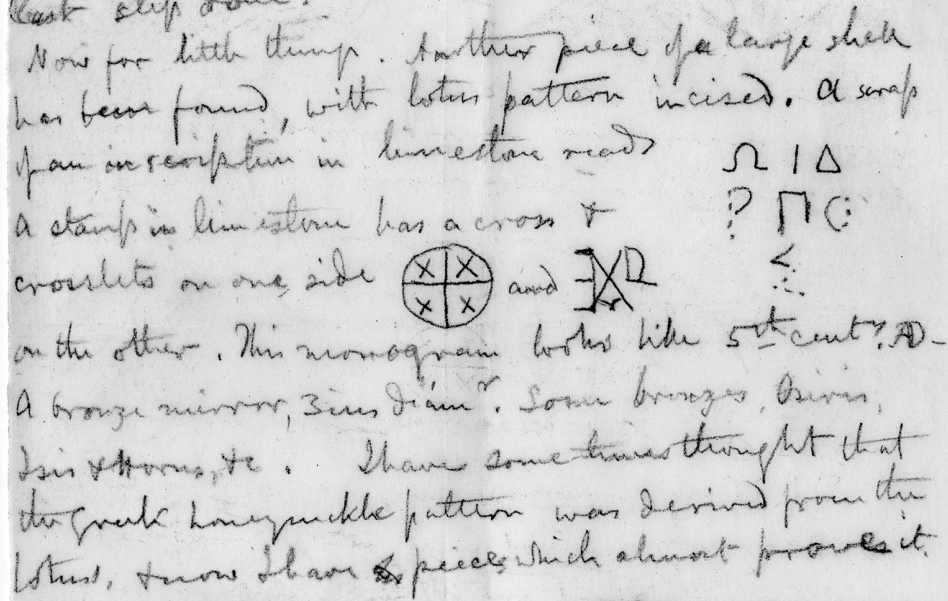 last slip done.
Now for little things. Another piece of a large shell
has been found, with lotus pattern incised. A scrap
of an inscription in limestone reads Ω Ι Δ
A stamp in limestone has a cross & ? Π (:
crosslets on one side and <
on the other. This monogram looks like 5th centy. AD.
A bronze mirror, 3 ins diamr. Some bronzes, Osiris,
Isis & Horus, &c. I have sometimes thought that
the Greek honeysuckle pattern was derived from the
lotus, & now I have pieces which almost proves it.